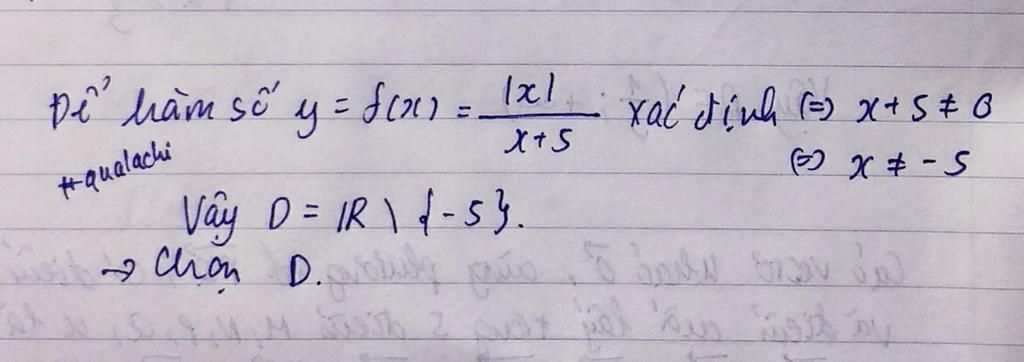 Để hàm số y = f(x) = |x| / x+5 xác định (=) x + 5 ≠ 0
#qualachi (=) x ≠ - 5
Vậy D = IR \ {-5}.
→ Chọn D.